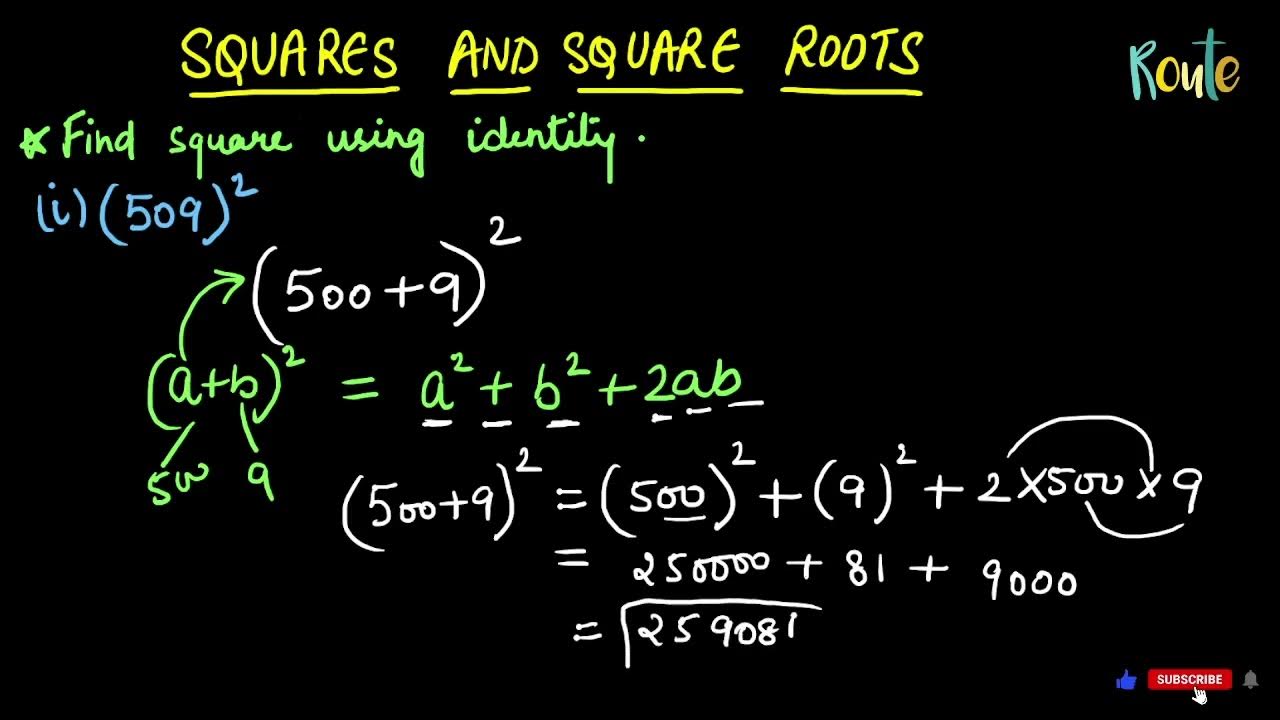 SQUARES AND SQUARE ROOTS
Route
* Find square using identity.
(i) (509)²
(500+9)²
(a+b)² = a² + b² + 2ab
500 9
(500+9)² = (500)² + (9)² + 2×500×9
= 250000 + 81 + 9000
= 259081
SUBSCRIBE